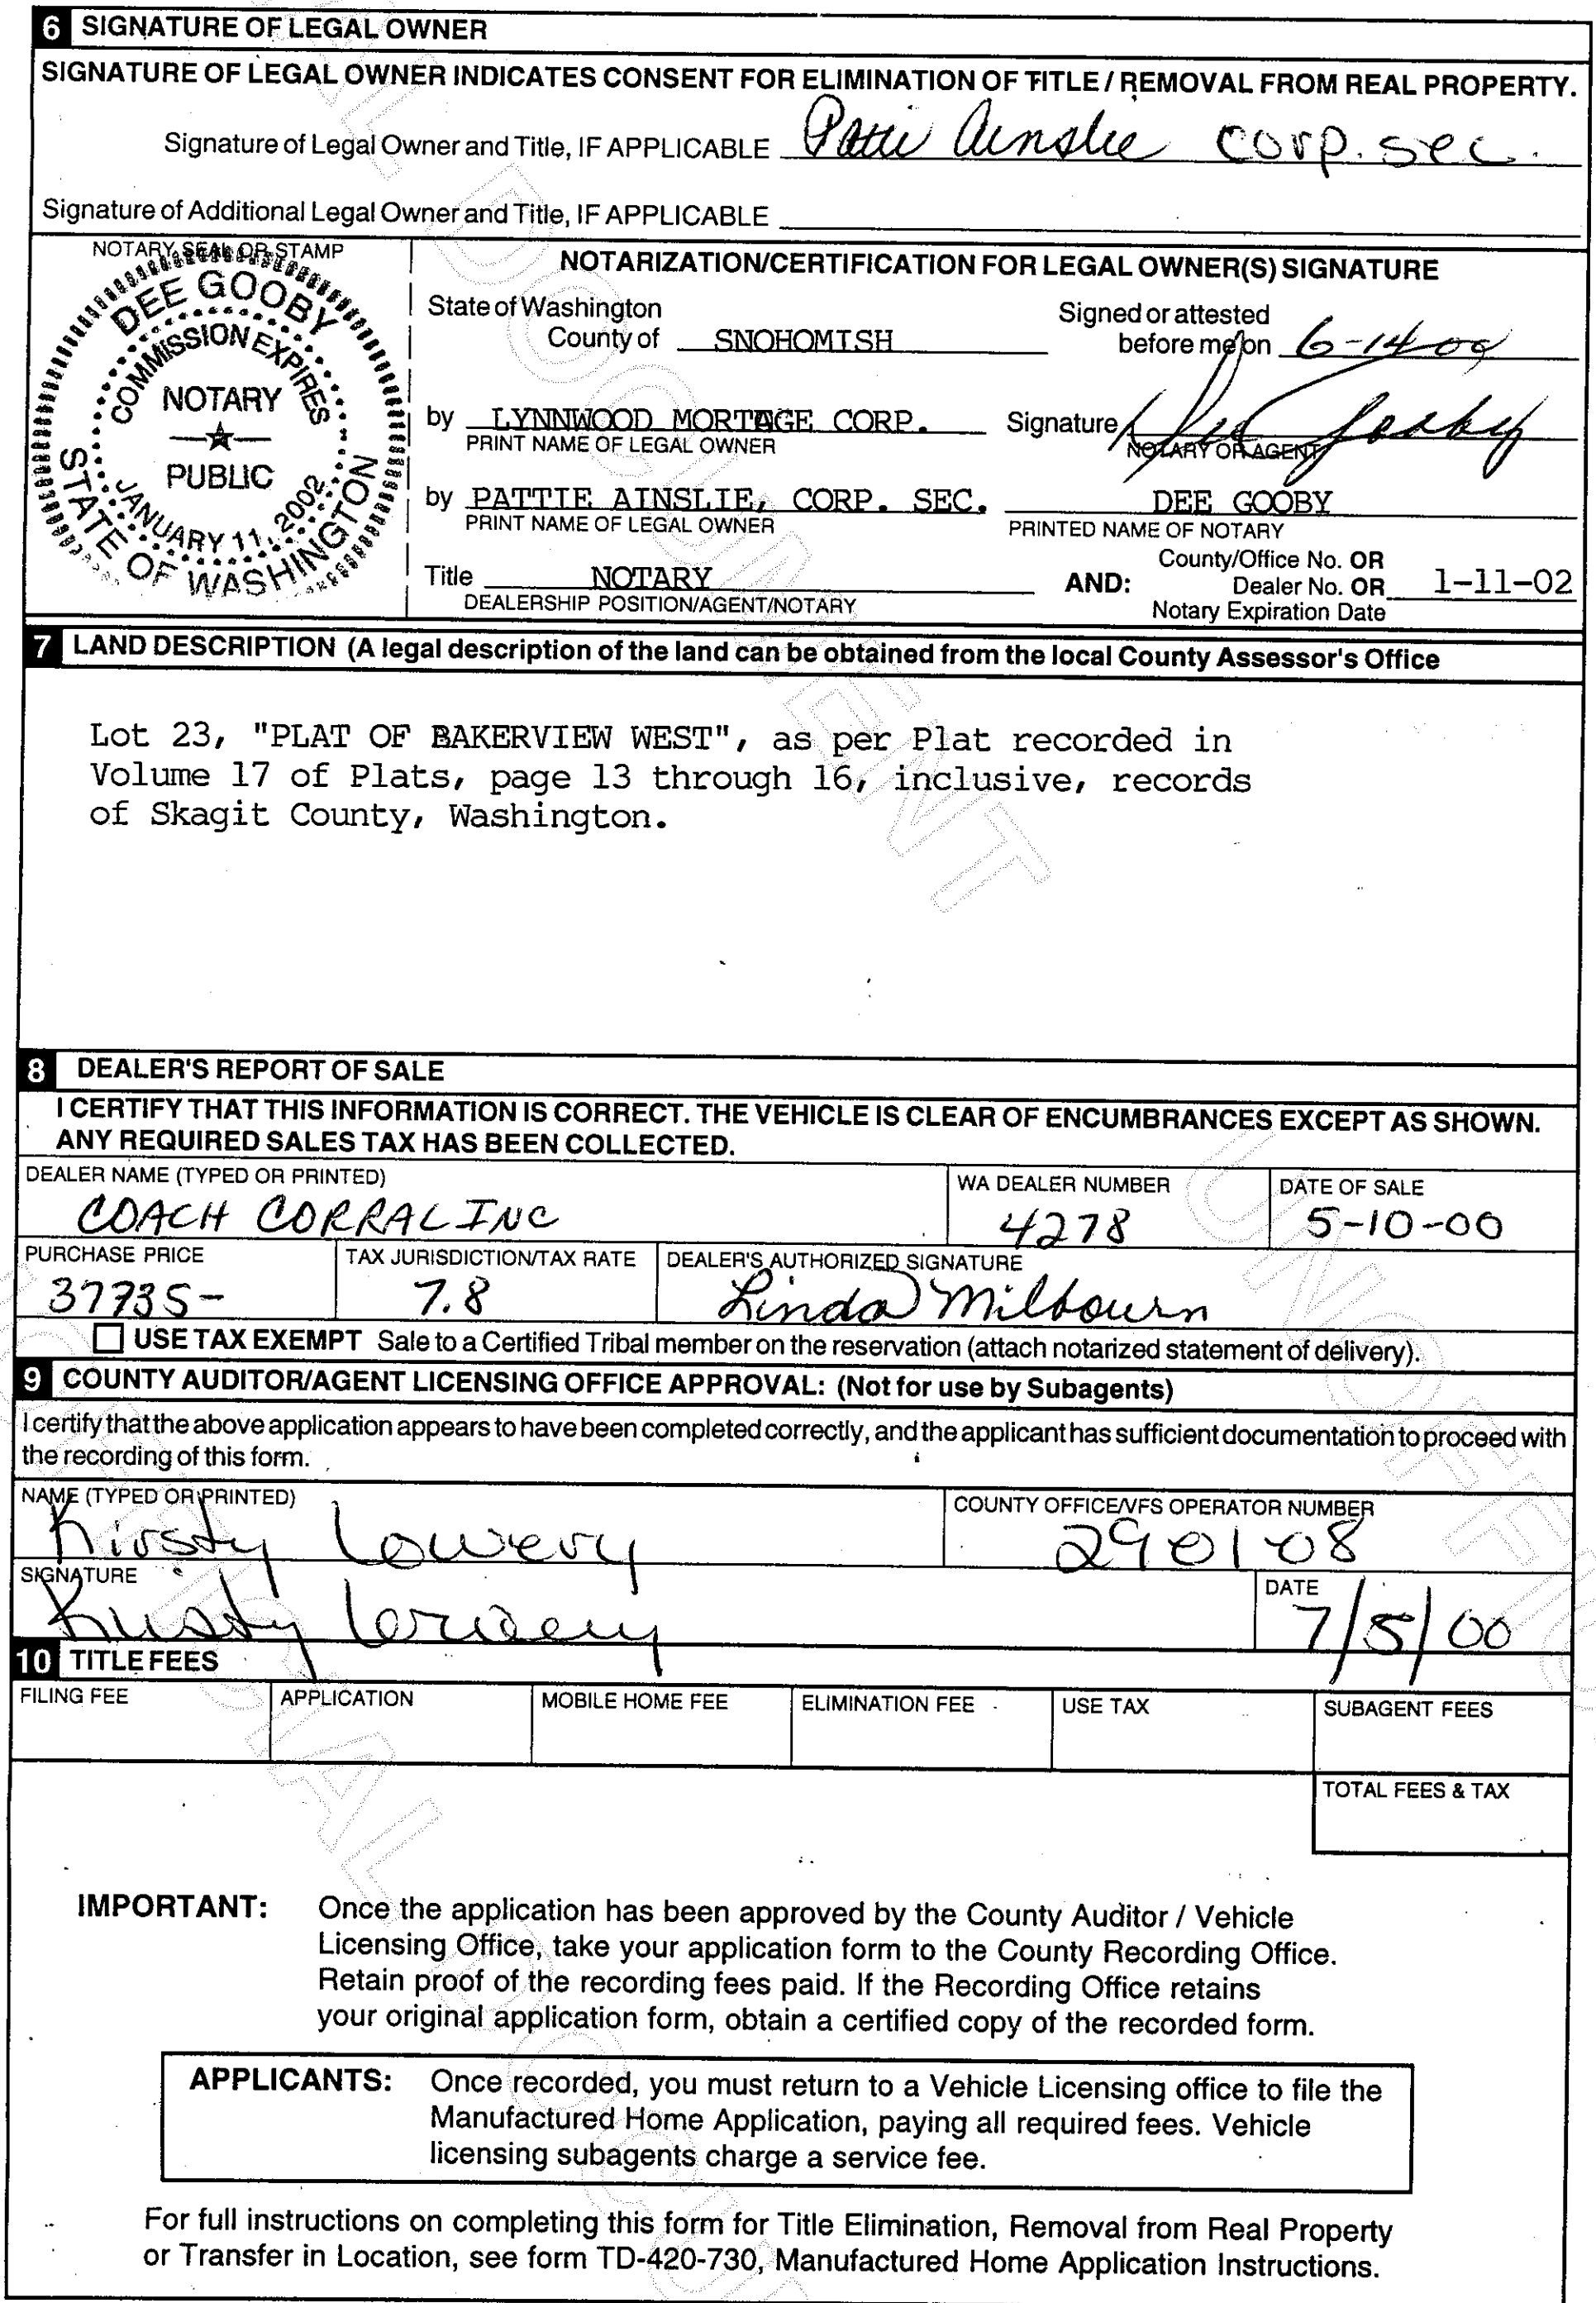 6 SIGNATURE OF LEGAL OWNER
SIGNATURE OF LEGAL OWNER INDICATES CONSENT FOR ELIMINATION OF TITLE / REMOVAL FROM REAL PROPERTY.
Signature of Legal Owner and Title, IF APPLICABLE Patti Ainslie corp. sec.
Signature of Additional Legal Owner and Title, IF APPLICABLE
NOTARY SEAL OR STAMP
DEE GOOBY
COMMISSION EXPIRES
NOTARY
PUBLIC
JANUARY 11, 2002
STATE OF WASHINGTON
NOTARIZATION/CERTIFICATION FOR LEGAL OWNER(S) SIGNATURE
State of Washington
County of SNOHOMISH
Signed or attested
before me on 6-14-00
by LYNNWOOD MORTAGE CORP.
PRINT NAME OF LEGAL OWNER
Signature Dee Gooby
NOTARY OR AGENT
by PATTIE AINSLIE, CORP. SEC.
PRINT NAME OF LEGAL OWNER
DEE GOOBY
PRINTED NAME OF NOTARY
Title NOTARY
DEALERSHIP POSITION/AGENT/NOTARY
AND:
County/Office No. OR
Dealer No. OR 1-11-02
Notary Expiration Date
7 LAND DESCRIPTION (A legal description of the land can be obtained from the local County Assessor's Office
Lot 23, "PLAT OF BAKERVIEW WEST", as per Plat recorded in
Volume 17 of Plats, page 13 through 16, inclusive, records
of Skagit County, Washington.
8 DEALER'S REPORT OF SALE
I CERTIFY THAT THIS INFORMATION IS CORRECT. THE VEHICLE IS CLEAR OF ENCUMBRANCES EXCEPT AS SHOWN.
ANY REQUIRED SALES TAX HAS BEEN COLLECTED.
DEALER NAME (TYPED OR PRINTED)
COACH CORRAL INC
WA DEALER NUMBER
4278
DATE OF SALE
5-10-00
PURCHASE PRICE
37735-
TAX JURISDICTION/TAX RATE
7.8
DEALER'S AUTHORIZED SIGNATURE
Linda Milbourn
USE TAX EXEMPT Sale to a Certified Tribal member on the reservation (attach notarized statement of delivery).
9 COUNTY AUDITOR/AGENT LICENSING OFFICE APPROVAL: (Not for use by Subagents)
I certify that the above application appears to have been completed correctly, and the applicant has sufficient documentation to proceed with
the recording of this form.
NAME (TYPED OR PRINTED)
Kirsty Lowery
COUNTY OFFICE/VFS OPERATOR NUMBER
290108
SIGNATURE
Kirsty Lowery
DATE
7/5/00
10 TITLE FEES
FILING FEE
APPLICATION
MOBILE HOME FEE
ELIMINATION FEE
USE TAX
SUBAGENT FEES
TOTAL FEES & TAX
IMPORTANT: Once the application has been approved by the County Auditor / Vehicle
Licensing Office, take your application form to the County Recording Office.
Retain proof of the recording fees paid. If the Recording Office retains
your original application form, obtain a certified copy of the recorded form.
APPLICANTS: Once recorded, you must return to a Vehicle Licensing office to file the
Manufactured Home Application, paying all required fees. Vehicle
licensing subagents charge a service fee.
For full instructions on completing this form for Title Elimination, Removal from Real Property
or Transfer in Location, see form TD-420-730, Manufactured Home Application Instructions.